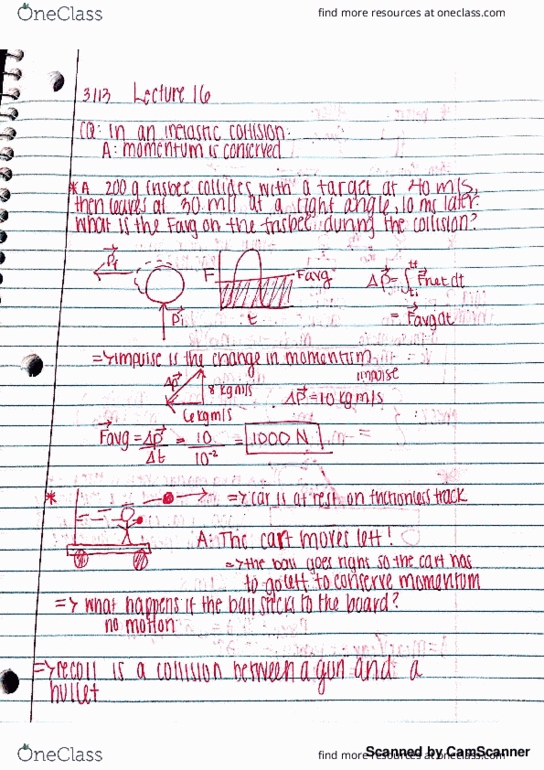 OneClass
find more resources at oneclass.com
3/13 Lecture 16
CQ: In an inelastic collision:
A: momentum is conserved
* A 200 g frisbee collides with a target at 40 m/s,
then leaves at 30 m/s at a right angle, 10 ms later.
What is the Favg on the frisbee during the collision?
Pf
F
Favg
Pi
t
ΔP = ∫ti tf Fnet dt
= FavgΔt
=> impulse is the change in momentum
impulse
ΔP
8 kg m/s
ΔP = 10 kg m/s
6 kg m/s
Favg = ΔP/Δt = 10/10⁻² = 1000 N
* => car is at rest on frictionless track
A: The cart moves left!
=> the ball goes right so the cart has
to go left to conserve momentum
=> what happens if the ball sticks to the board?
no motion
=> recoil is a collision between a gun and a
bullet
OneClass
find more resources at oneclass.com
Scanned by CamScanner